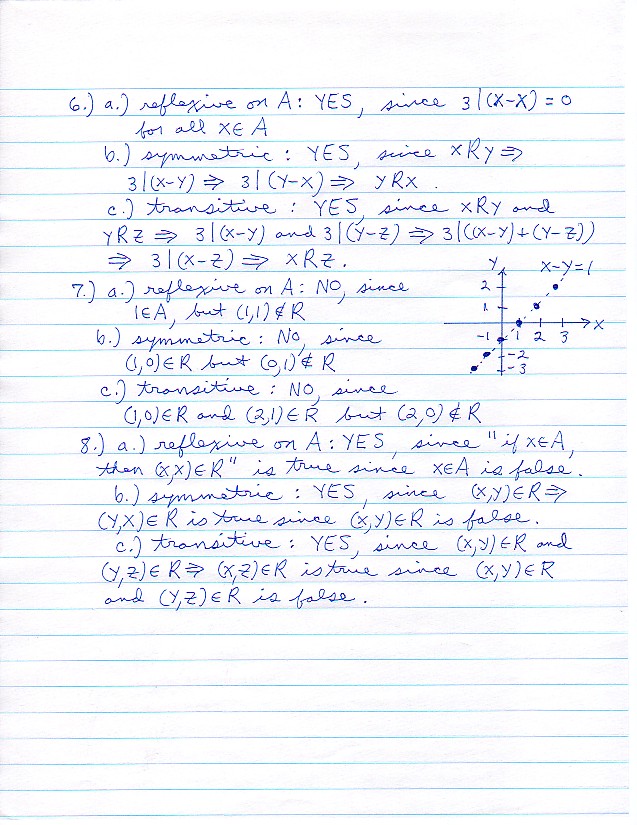 6.) a.) reflexive on A: YES, since 3|(X-X) = 0
for all X∈A
b.) symmetric: YES, since xRy ⇒
3|(X-Y) ⇒ 3|(Y-X) ⇒ yRx.
c.) transitive: YES, since xRy and
yRz ⇒ 3|(X-Y) and 3|(Y-Z) ⇒ 3|((X-Y)+(Y-Z))
⇒ 3|(X-Z) ⇒ xRz.
7.) a.) reflexive on A: NO, since
1∈A, but (1,1)∉R
b.) symmetric: NO, since
(1,0)∈R but (0,1)∉R
c.) transitive: NO, since
(1,0)∈R and (2,1)∈R but (2,0)∉R
Y
X-Y=1
2
1
X
-1
1 2 3
-2
-3
8.) a.) reflexive on A: YES, since "if X∈A,
then (X,X)∈R" is true since X∈A is false.
b.) symmetric: YES, since (X,Y)∈R ⇒
(Y,X)∈R is true since (X,Y)∈R is false.
c.) transitive: YES, since (X,Y)∈R and
(Y,Z)∈R ⇒ (X,Z)∈R is true since (X,Y)∈R
and (Y,Z)∈R is false.